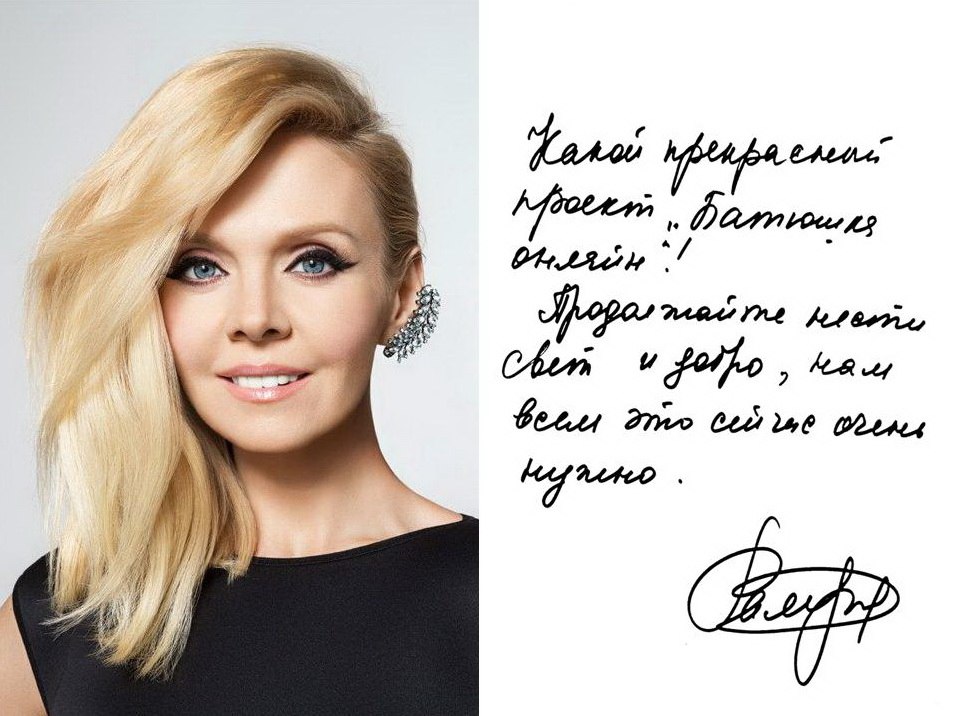 Какой прекрасный
проект „Батюшка
онлайн“!
Продолжайте нести
свет и добро, нам
всем это сейчас очень
нужно.